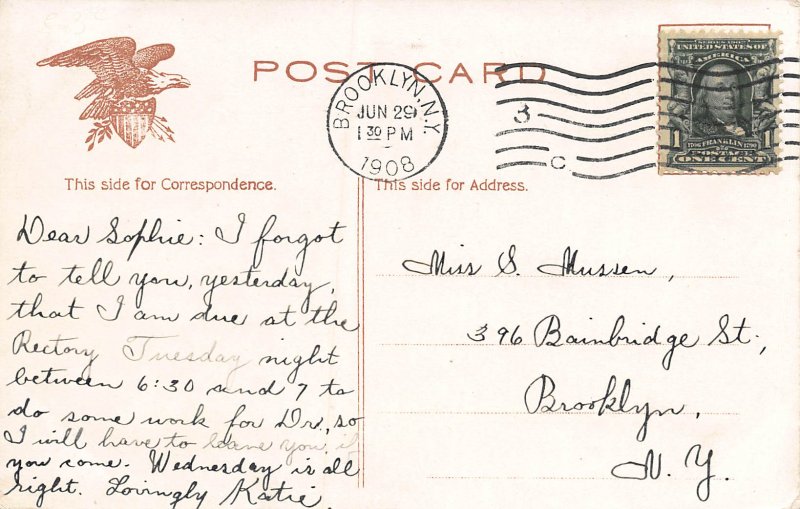 POST CARD
BROOKLYN, N.Y.
JUN 29
1 30 PM
1908
3
C
SERIES 1902
UNITED STATES OF
AMERICA
1
1706 FRANKLIN 1790
POSTAGE
ONE CENT
This side for Correspondence.
This side for Address.
Dear Sophie: I forgot
to tell you, yesterday,
that I am due at the
Rectory Tuesday night
between 6:30 and 7 to
do some work for Dr, so
I will have to leave you, if
you come. Wednesday is all
right. Lovingly Katie.
Miss S. Mussen,
396 Bainbridge St.,
Brooklyn,
N. Y.